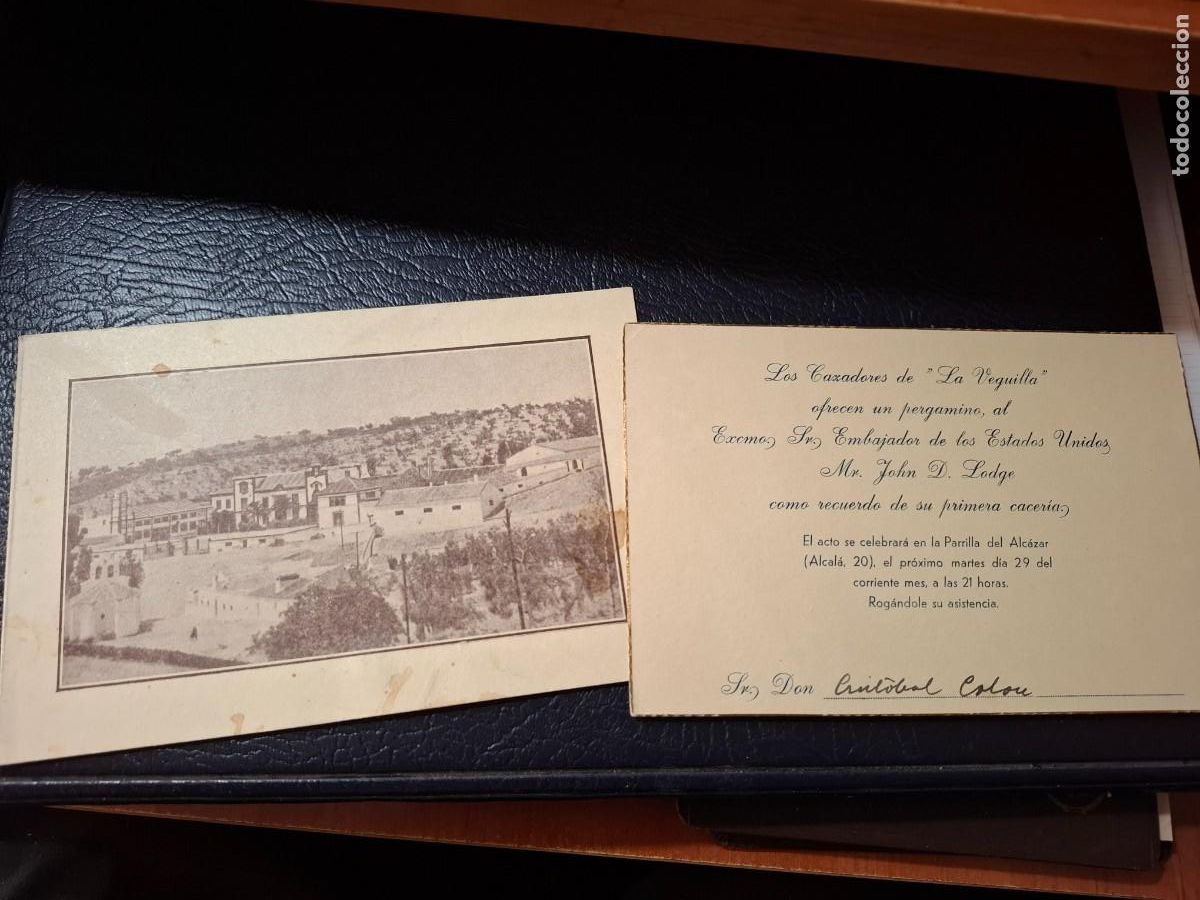 Los Cazadores de "La Veguilla"
ofrecen un pergamino, al
Excmo. Sr. Embajador de los Estados Unidos,
Mr. John D. Lodge
como recuerdo de su primera cacería.
El acto se celebrará en la Parrilla del Alcázar
(Alcalá, 20), el próximo martes día 29 del
corriente mes, a las 21 horas.
Rogándole su asistencia.
Sr. Don Cristobal Colon
todocoleccion